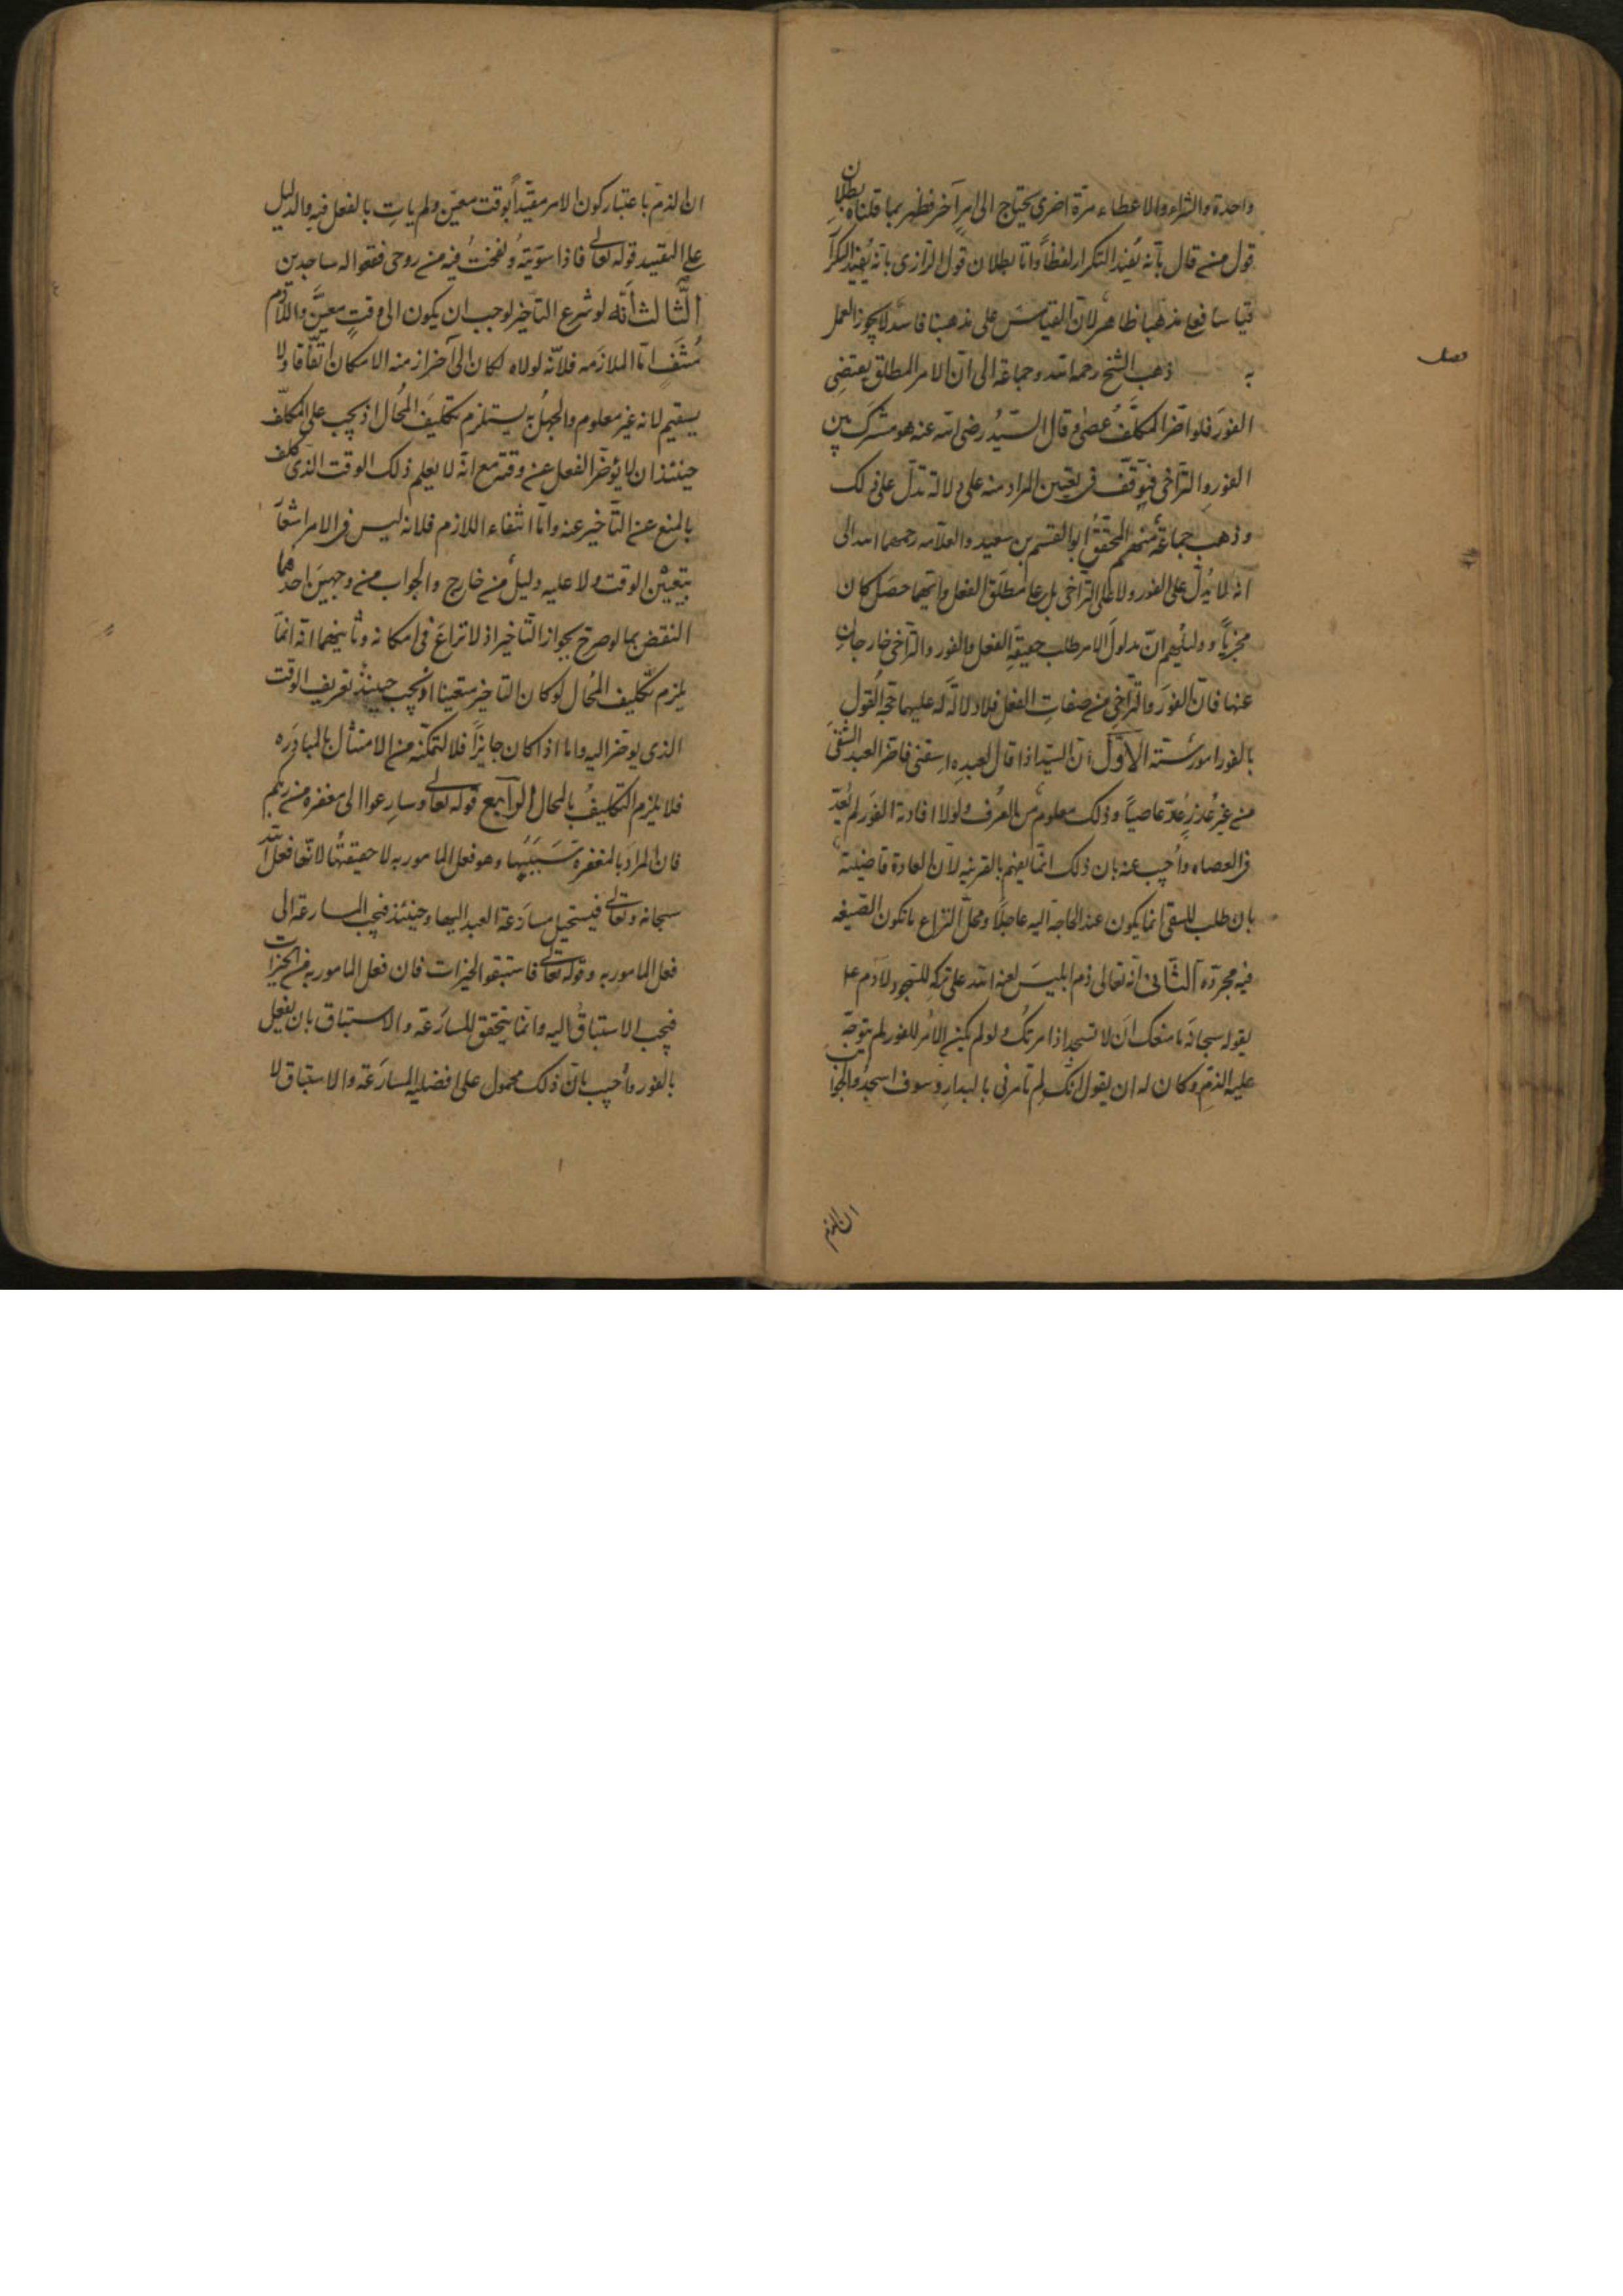 واحدة والشراء والاعطاء مرة اخرى يحتاج الى امر آخر فظهر بما قلناه بطلان
قول من قال بأنه يفيد التكرار لفظاً وامّا بطلان قول الرازى بانه يفيد التكرار
قياسا فعلى مذهبنا ظاهر لأن القياس على مذهبنا فاسد لا يجوز العمل
به ذهب الشيخ رحمه الله وجماعة الى ان الامر المطلق يقتضى
فصل
الفور فلو اخر المكلف عصى وقال السيد رضى الله عنه هو مشترك بين
الفور والتراخى فيتوقف فى تعيين المراد منه على دلالة تدل على ذلك
وذهب جماعة منهم المحقق ابو القسم بن سعيد والعلامه رحمهما الله الى
انه لا يدل على الفور ولا على التراخى بل على مطلق الفعل وايهما حصل كان
مجزياً ودليلهم ان مدلول الامر طلب حقيقة الفعل والفور والتراخى خارجان
عنها فان الفور والتراخى من صفات الفعل فلا دلالة له عليهما حجة القول
بالفور امور ستة الاول ان السيد اذا قال لعبده اسقنى فاخر العبد السقى
من غير عذر عدّ عاصياً وذلك معلوم من العرف ولولا افادته الفور لم يعدّ
فى العصاه واجيب عنه بان ذلك انما يفهم بالقرينه لان العادة قاضية
بان طلب السقى انما يكون عند الحاجة اليه عاجلاً ومحل النزاع ما تكون الصيغه
فيه مجردة الثانى انه تعالى ذم ابليس لعنه الله على تركه للسجود لآدم ع
بقوله سبحانه ما منعك ان لا تسجد اذ امرتك ولو لم يكن الامر للفور لم يتوجه
عليه الذم وكان له ان يقول انك لم تأمرنى بالبدار وسوف اسجد والجواب
ان الذم
ان الذم باعتبار كون الامر مقيداً بوقت معين ولم يات بالفعل فيه والدليل
على التقييد قوله تعالى فاذا سويته ونفخت فيه من روحى فقعوا له ساجدين
الثالث أنه لو شرع التاخير لوجب ان يكون الى وقت معين واللازم
منتف امّا الملازمه فلانه لولاه لكان الى آخر ازمنة الامكان اتفاقا ولا
يستقيم لانه غير معلوم والجهل به يستلزم تكليف المحال اذ يجب على المكلف
حينئذ ان لا يؤخر الفعل عن وقته مع انه لا يعلم ذلك الوقت الذى كلف
بالمنع عن التأخير عنه وامّا انتفاء اللازم فلانه ليس فى الامر اشعار
بتعيين الوقت ولا عليه دليل من خارج والجواب من وجهين احدهما
النقض بما لو صرح بجواز التاخير اذ لا نزاع فى امكانه وثانيهما انه انما
يلزم تكليف المحال لو كان التاخير متعينا اذ يجب حينئذ تعريف الوقت
الذى يوخر اليه واما اذا كان جايزاً فلا لتمكنه من الامتثال بالمبادره
فلا يلزم التكليف بالمحال الرابع قوله تعالى وسارعوا الى مغفرة من ربكم
فان المراد بالمغفرة سببها وهو فعل المامور به لا حقيقتها لانها فعل الله
سبحانه وتعالى فيستحيل مسارعة العبد اليها وحينئذ فيجب المسارعة الى
فعل المامور به وقوله تعالى فاستبقوا الخيرات فان فعل المامور به من الخيرات
فيجب الاستباق اليه وانما يتحقق المسارعة والاستباق بان يفعل
بالفور واجيب بان ذلك محمول على افضلية المسارعة والاستباق لا